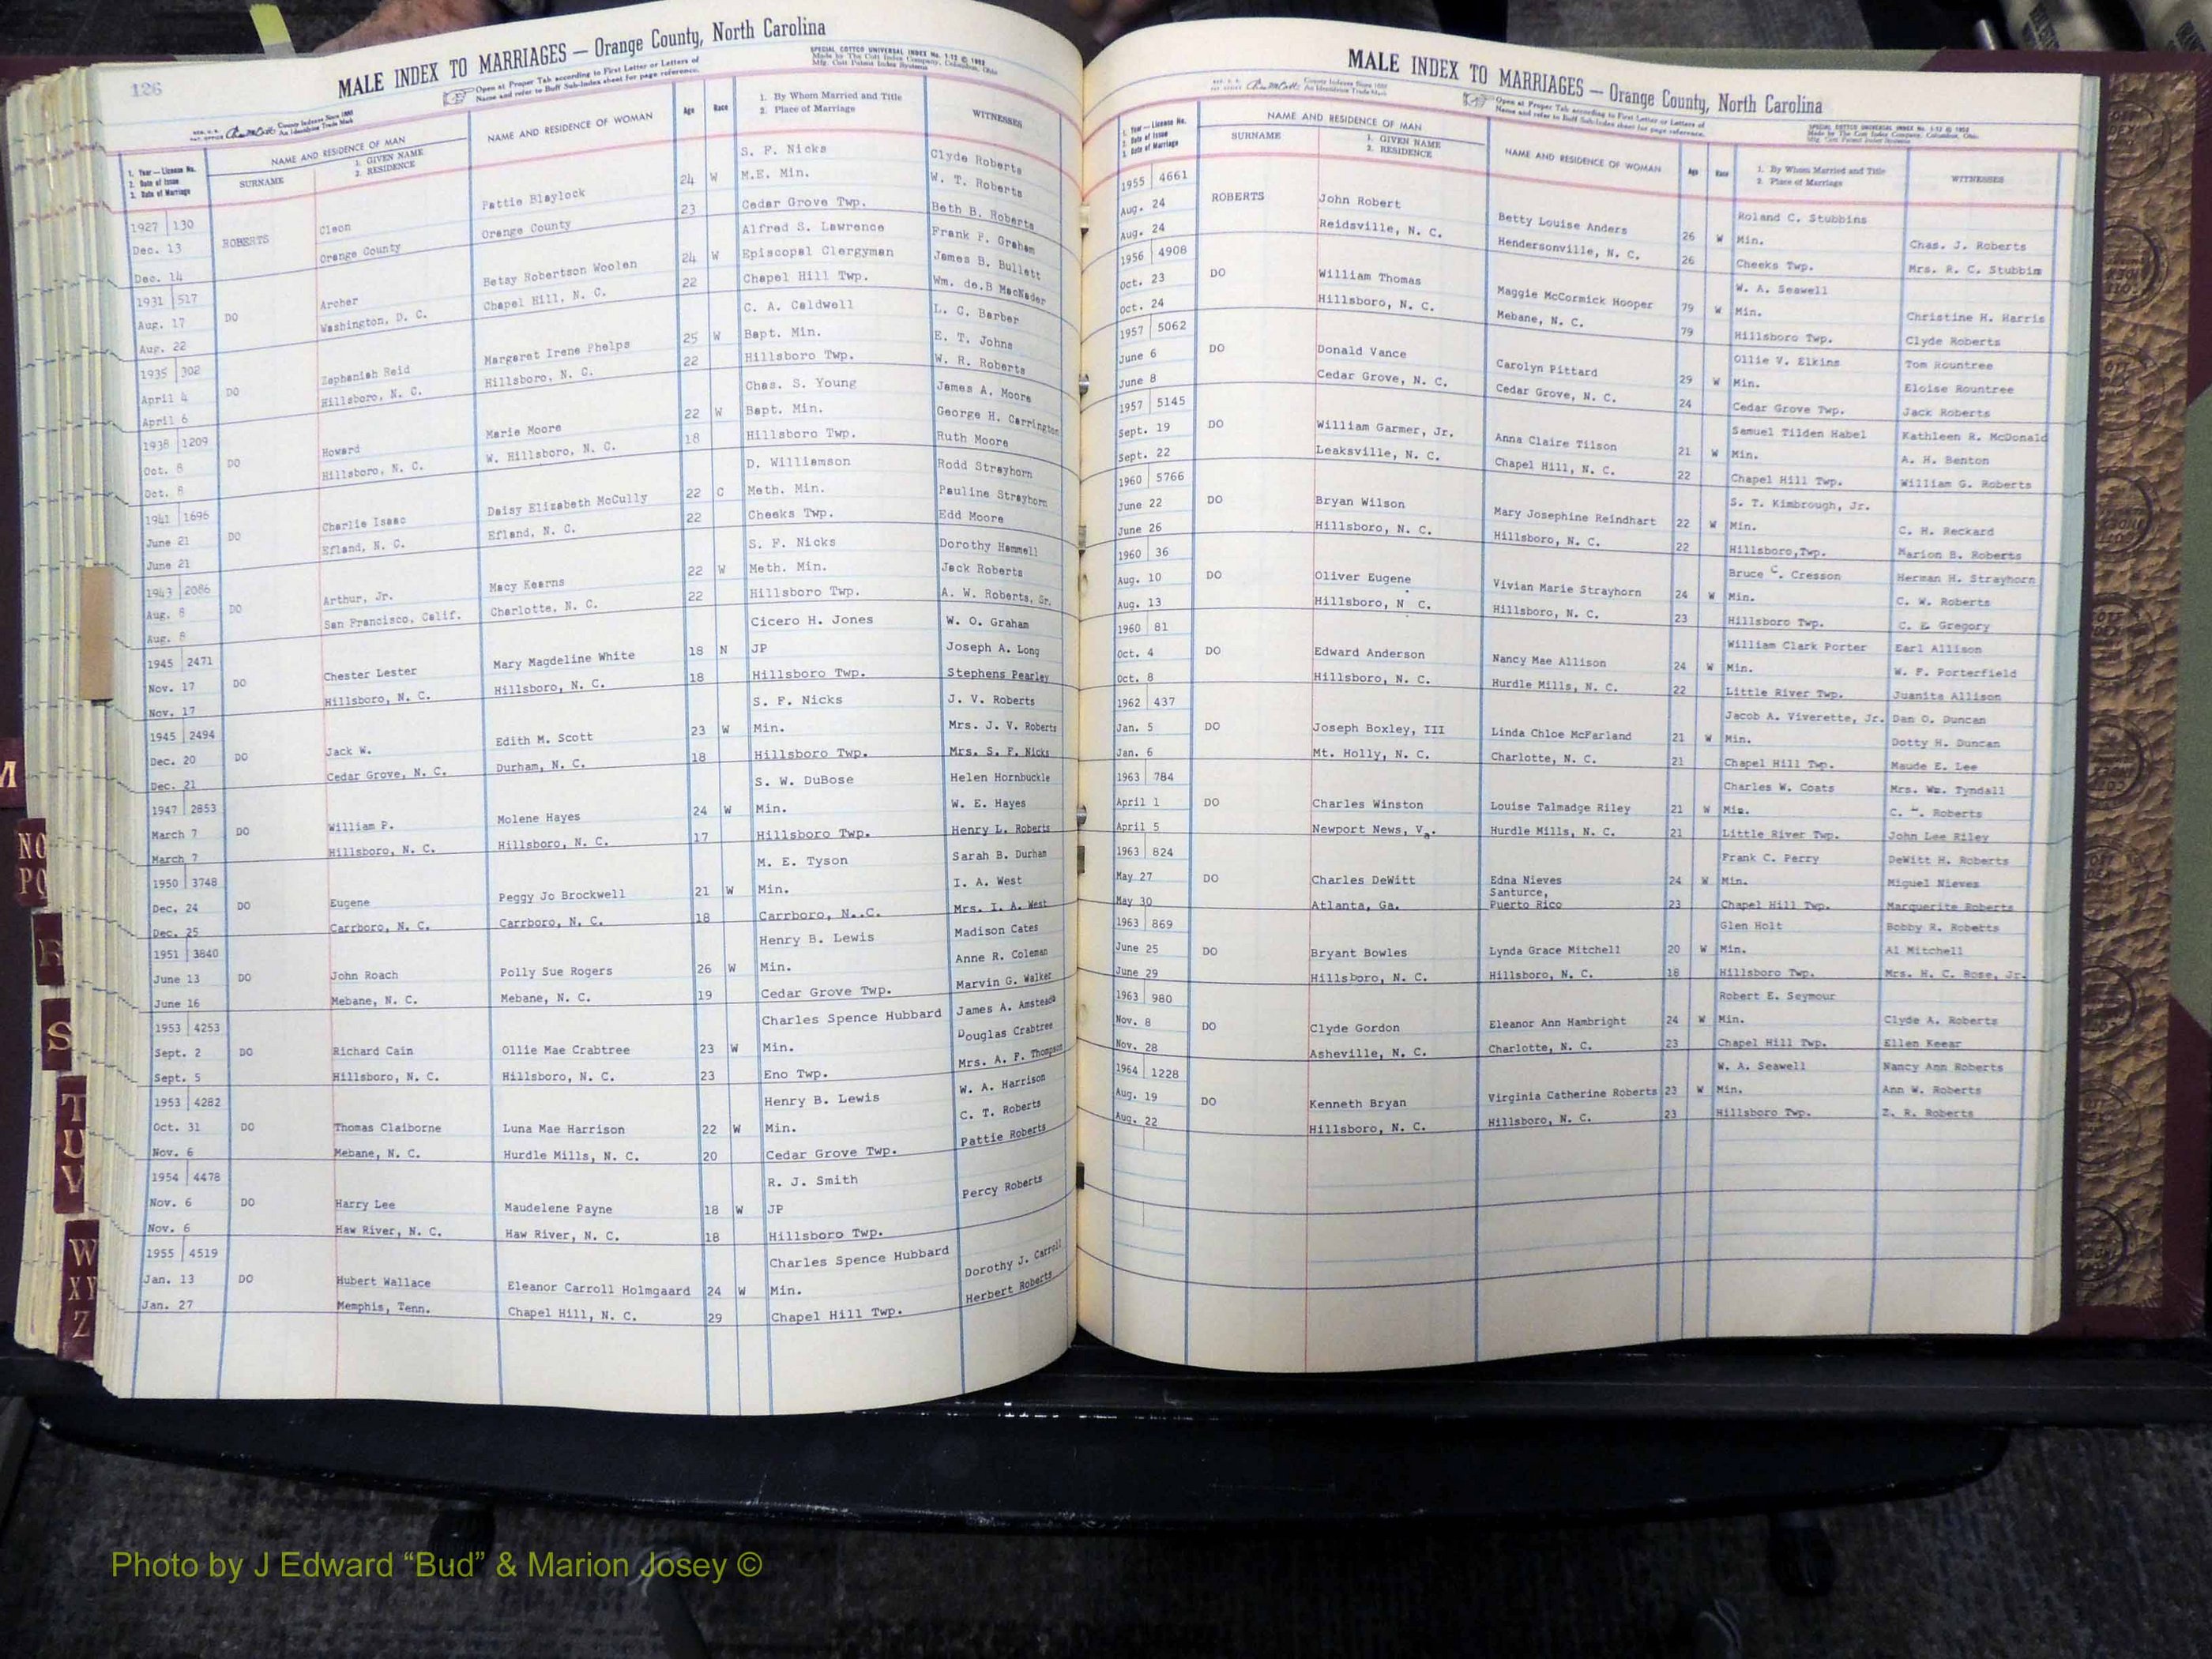 126
MALE INDEX TO MARRIAGES — Orange County, North Carolina
Open at Proper Tab according to First Letter or Letters of
Name and refer to Buff Sub-Index sheet for page reference.
SPECIAL COTTCO UNIVERSAL INDEX No. 1-12 © 1952
Made by The Cott Index Company, Columbus, Ohio
Mfg. Cott Patent Index Systems
County Indexes Since 1888
An Identifying Trade Mark
1. Year — License No.
2. Date of Issue
3. Date of Marriage
NAME AND RESIDENCE OF MAN
SURNAME
1. GIVEN NAME
2. RESIDENCE
NAME AND RESIDENCE OF WOMAN
Age
Race
1. By Whom Married and Title
2. Place of Marriage
WITNESSES
S. F. Nicks Clyde Roberts
1927 130 Pattie Blaylock 24 W M.E. Min. W. T. Roberts
Dec. 13 ROBERTS Cleon Orange County 23 Cedar Grove Twp. Beth B. Roberts
Dec. 14 Orange County
Alfred S. Lawrence Frank P. Graham
1931 517 Betsy Robertson Woolen 24 W Episcopal Clergyman James B. Bullett
Aug. 17 DO Archer Chapel Hill, N. C. 22 Chapel Hill Twp. Wm. de.B MacNeder
Aug. 22 Washington, D. C.
C. A. Caldwell L. C. Barber
1935 302 Margaret Irene Phelps 25 W Bapt. Min. E. T. Johns
April 4 DO Zephaniah Reid Hillsboro, N. C. 22 Hillsboro Twp. W. R. Roberts
April 6 Hillsboro, N. C.
Chas. S. Young James A. Moore
1938 1209 Marie Moore 22 W Bapt. Min. George H. Carrington
Oct. 8 DO Howard W. Hillsboro, N. C. 18 Hillsboro Twp. Ruth Moore
Oct. 8 Hillsboro, N. C.
D. Williamson Rodd Strayhorn
1941 1696 Daisy Elizabeth McCully 22 C Meth. Min. Pauline Strayhorn
June 21 DO Charlie Isaac Efland, N. C. 22 Cheeks Twp. Edd Moore
June 21 Efland, N. C.
S. F. Nicks Dorothy Hammell
1943 2086 Macy Kearns 22 W Meth. Min. Jack Roberts
Aug. 8 DO Arthur, Jr. Charlotte, N. C. 22 Hillsboro Twp. A. W. Roberts, Sr.
Aug. 8 San Francisco, Calif.
Cicero H. Jones W. O. Graham
1945 2471 Mary Magdeline White 18 N JP Joseph A. Long
Nov. 17 DO Chester Lester Hillsboro, N. C. 18 Hillsboro Twp. Stephens Pearley
Nov. 17 Hillsboro, N. C.
S. F. Nicks J. V. Roberts
1945 2494 Edith M. Scott 23 W Min. Mrs. J. V. Roberts
Dec. 20 DO Jack W. Durham, N. C. 18 Hillsboro Twp. Mrs. S. F. Nicks
Dec. 21 Cedar Grove, N. C.
S. W. DuBose Helen Hornbuckle
1947 2853 Molene Hayes 24 W Min. W. E. Hayes
March 7 DO William P. Hillsboro, N. C. 17 Hillsboro Twp. Henry L. Roberts
March 7 Hillsboro, N. C.
M. E. Tyson Sarah B. Durham
1950 3748 Peggy Jo Brockwell 21 W Min. I. A. West
Dec. 24 DO Eugene Carrboro, N. C. 18 Carrboro, N..C. Mrs. I. A. West
Dec. 25 Carrboro, N. C.
Henry B. Lewis Madison Cates
1951 3840 Polly Sue Rogers 26 W Min. Anne R. Coleman
June 13 DO John Roach Mebane, N. C. 19 Cedar Grove Twp. Marvin G. Walker
June 16 Mebane, N. C.
1953 4253 Charles Spence Hubbard James A. Amsteadb
Sept. 2 DO Richard Cain Ollie Mae Crabtree 23 W Min. Douglas Crabtree
Sept. 5 Hillsboro, N. C. Hillsboro, N. C. 23 Eno Twp. Mrs. A. F. Thompson
1953 4282 Henry B. Lewis W. A. Harrison
Oct. 31 DO Thomas Claiborne Luna Mae Harrison 22 W Min. C. T. Roberts
Nov. 6 Mebane, N. C. Hurdle Mills, N. C. 20 Cedar Grove Twp. Pattie Roberts
1954 4478 R. J. Smith
Nov. 6 DO Harry Lee Maudelene Payne 18 W JP Percy Roberts
Nov. 6 Haw River, N. C. Haw River, N. C. 18 Hillsboro Twp.
1955 4519 Charles Spence Hubbard
Jan. 13 DO Hubert Wallace Eleanor Carroll Holmgaard 24 W Min. Dorothy J. Carroll
Jan. 27 Memphis, Tenn. Chapel Hill, N. C. 29 Chapel Hill Twp. Herbert Roberts
MALE INDEX TO MARRIAGES — Orange County, North Carolina
County Indexes Since 1888
An Identifying Trade Mark
Open at Proper Tab according to First Letter or Letters of
Name and refer to Buff Sub-Index sheet for page reference.
SPECIAL COTTCO UNIVERSAL INDEX No. 1-12 © 1952
Made by The Cott Index Company, Columbus, Ohio
Mfg. Cott Patent Index Systems
1. Year — License No.
2. Date of Issue
3. Date of Marriage
NAME AND RESIDENCE OF MAN
SURNAME
1. GIVEN NAME
2. RESIDENCE
NAME AND RESIDENCE OF WOMAN
Age
Race
1. By Whom Married and Title
2. Place of Marriage
WITNESSES
1955 4661 Roland C. Stubbins
Aug. 24 ROBERTS John Robert Betty Louise Anders 26 W Min. Chas. J. Roberts
Aug. 24 Reidsville, N. C. Hendersonville, N. C. 26 Cheeks Twp. Mrs. R. C. Stubbim
1956 4908 W. A. Seawell
Oct. 23 DO William Thomas Maggie McCormick Hooper 79 W Min. Christine H. Harris
Oct. 24 Hillsboro, N. C. Mebane, N. C. 79 Hillsboro Twp. Clyde Roberts
1957 5062 Ollie V. Elkins Tom Rountree
June 6 DO Donald Vance Carolyn Pittard 29 W Min. Eloise Rountree
June 8 Cedar Grove, N. C. Cedar Grove, N. C. 24 Cedar Grove Twp. Jack Roberts
1957 5145 Samuel Tilden Habel Kathleen R. McDonald
Sept. 19 DO William Garmer, Jr. Anna Claire Tilson 21 W Min. A. H. Benton
Sept. 22 Leaksville, N. C. Chapel Hill, N. C. 22 Chapel Hill Twp. William G. Roberts
1960 5766 S. T. Kimbrough, Jr.
June 22 DO Bryan Wilson Mary Josephine Reindhart 22 W Min. C. H. Reckard
June 26 Hillsboro, N. C. Hillsboro, N. C. 22 Hillsboro,Twp. Marion B. Roberts
1960 36 Bruce C. Cresson Herman H. Strayhorn
Aug. 10 DO Oliver Eugene Vivian Marie Strayhorn 24 W Min. C. W. Roberts
Aug. 13 Hillsboro, N C. Hillsboro, N. C. 23 Hillsboro Twp. C. E Gregory
1960 81 William Clark Porter Earl Allison
Oct. 4 DO Edward Anderson Nancy Mae Allison 24 W Min. W. F. Porterfield
Oct. 8 Hillsboro, N. C. Hurdle Mills, N. C. 22 Little River Twp. Juanita Allison
1962 437 Jacob A. Viverette, Jr. Dan O. Duncan
Jan. 5 DO Joseph Boxley, III Linda Chloe McFarland 21 W Min. Dotty H. Duncan
Jan. 6 Mt. Holly, N. C. Charlotte, N. C. 21 Chapel Hill Twp. Maude E. Lee
1963 784 Charles W. Coats Mrs. Wm. Tyndall
April 1 DO Charles Winston Louise Talmadge Riley 21 W Min. C. Roberts
April 5 Newport News, Va. Hurdle Mills, N. C. 21 Little River Twp. John Lee Riley
1963 824 Frank C. Perry DeWitt H. Roberts
May 27 DO Charles DeWitt Edna Nieves 24 W Min. Miguel Nieves
Santurce,
May 30 Atlanta, Ga. Puerto Rico 23 Chapel Hill Twp. Marguerite Roberts
1963 869 Glen Holt Bobby R. Robetts
June 25 DO Bryant Bowles Lynda Grace Mitchell 20 W Min. Al Mitchell
June 29 Hillsboro, N. C. Hillsboro, N. C. 18 Hillsboro Twp. Mrs. H. C. Rose, Jr.
1963 980 Robert E. Seymour
Nov. 8 DO Clyde Gordon Eleanor Ann Hambright 24 W Min. Clyde A. Roberts
Nov. 28 Asheville, N. C. Charlotte, N. C. 23 Chapel Hill Twp. Ellen Keear
1964 1228 W. A. Seawell Nancy Ann Roberts
Aug. 19 DO Kenneth Bryan Virginia Catherine Roberts 23 W Min. Ann W. Roberts
Aug. 22 Hillsboro, N. C. Hillsboro, N. C. 23 Hillsboro Twp. Z. R. Roberts
M
NO
PQ
R
S
T
U
V
W
XY
Z
Photo by J Edward “Bud” & Marion Josey ©